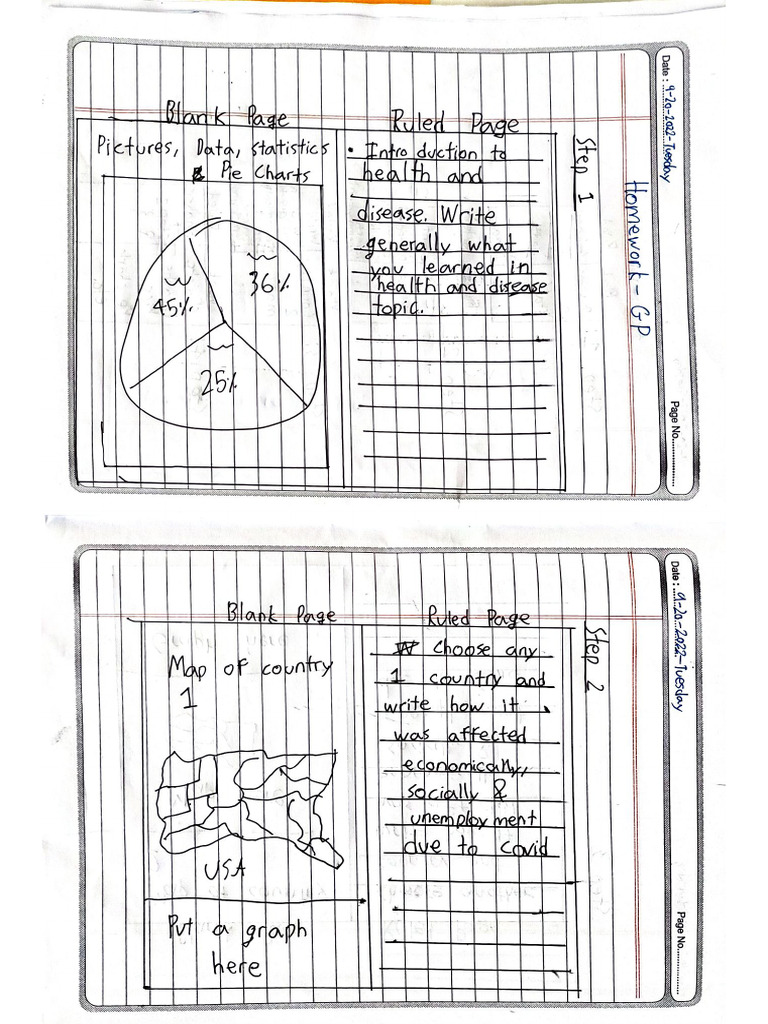 Date : 9-20-2022-Tuesday
Page No.
Homework - GP
Step 1
Blank Page
Pictures, Data, statistics
& Pie Charts
36%
45%
25%
Ruled Page
• Introduction to
health and
disease. Write
generally what
you learned in
health and disease
topic.
Date : 9-20-2022-Tuesday
Page No.
Step 2
Blank Page
Map of country
1
USA
Put a graph
here
Ruled Page
Choose any
1 country and
write how it
was affected
economically,
socially &
unemployment
due to covid